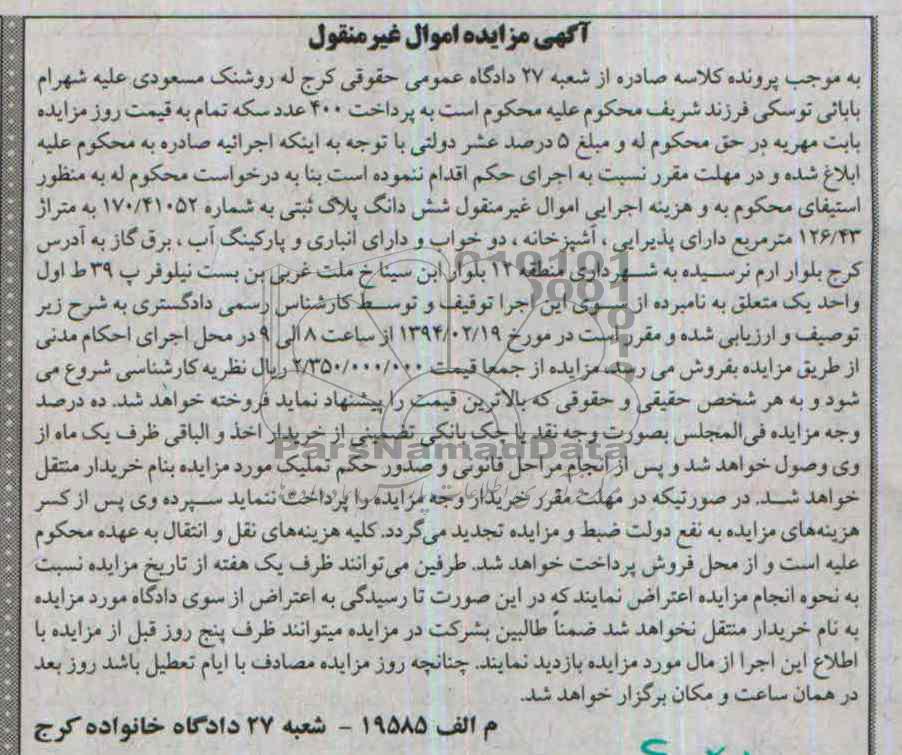 آگهی مزایده اموال غیرمنقول
به موجب پرونده کلاسه صادره از شعبه ۲۷ دادگاه عمومی حقوقی کرج له روشنک مسعودی علیه شهرام
بابائی توسکی فرزند شریف محکوم علیه محکوم است به پرداخت ۴۰۰ عدد سکه تمام به قیمت روز مزایده
بابت مهریه در حق محکوم له و مبلغ ۵ درصد عشر دولتی با توجه به اینکه اجرائیه صادره به محکوم علیه
ابلاغ شده و در مهلت مقرر نسبت به اجرای حکم اقدام ننموده است بنا به درخواست محکوم له به منظور
استیفای محکوم به و هزینه اجرایی اموال غیرمنقول شش دانگ پلاک ثبتی به شماره ۱۷۰/۴۱۰۵۲ به متراژ
۱۲۶/۴۳ مترمربع دارای پذیرایی ، آشپزخانه ، دو خواب و دارای انباری و پارکینگ آب ، برق گاز به آدرس
کرج بلوار ارم نرسیده به شهرداری منطقه ۱۲ بلوار ابن سینا خ ملت غربی بن بست نیلوفر پ ۳۹ ط اول
واحد یک متعلق به نامبرده از سوی این اجرا توقیف و توسط کارشناس رسمی دادگستری به شرح زیر
توصیف و ارزیابی شده و مقرر است در مورخ ۱۳۹۴/۰۲/۱۹ از ساعت ۸ الی ۹ در محل اجرای احکام مدنی
از طریق مزایده بفروش می رسد، مزایده از جمعا قیمت ۲/۳۵۰/۰۰۰/۰۰۰ ریال نظریه کارشناسی شروع می
شود و به هر شخص حقیقی و حقوقی که بالاترین قیمت را پیشنهاد نماید فروخته خواهد شد. ده درصد
وجه مزایده فی‌المجلس بصورت وجه نقد یا چک بانکی تضمینی از خریدار اخذ و الباقی ظرف یک ماه از
وی وصول خواهد شد و پس از انجام مراحل قانونی و صدور حکم تملیک مورد مزایده بنام خریدار منتقل
خواهد شد. در صورتیکه در مهلت مقرر خریدار وجه مزایده را پرداخت ننماید سپرده وی پس از کسر
هزینه‌های مزایده به نفع دولت ضبط و مزایده تجدید می‌گردد. کلیه هزینه‌های نقل و انتقال به عهده محکوم
علیه است و از محل فروش پرداخت خواهد شد. طرفین می‌توانند ظرف یک هفته از تاریخ مزایده نسبت
به نحوه انجام مزایده اعتراض نمایند که در این صورت تا رسیدگی به اعتراض از سوی دادگاه مورد مزایده
به نام خریدار منتقل نخواهد شد ضمناً طالبین بشرکت در مزایده میتوانند ظرف پنج روز قبل از مزایده با
اطلاع این اجرا از مال مورد مزایده بازدید نمایند. چنانچه روز مزایده مصادف با ایام تعطیل باشد روز بعد
در همان ساعت و مکان برگزار خواهد شد.
م الف ۱۹۵۸۵ - شعبه ۲۷ دادگاه خانواده کرج
ParsNamadData